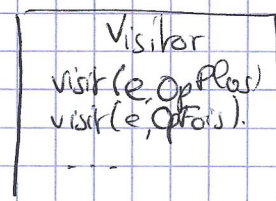 Visitor
visit(e, OpPlus)
visit(e, OpFois).
....